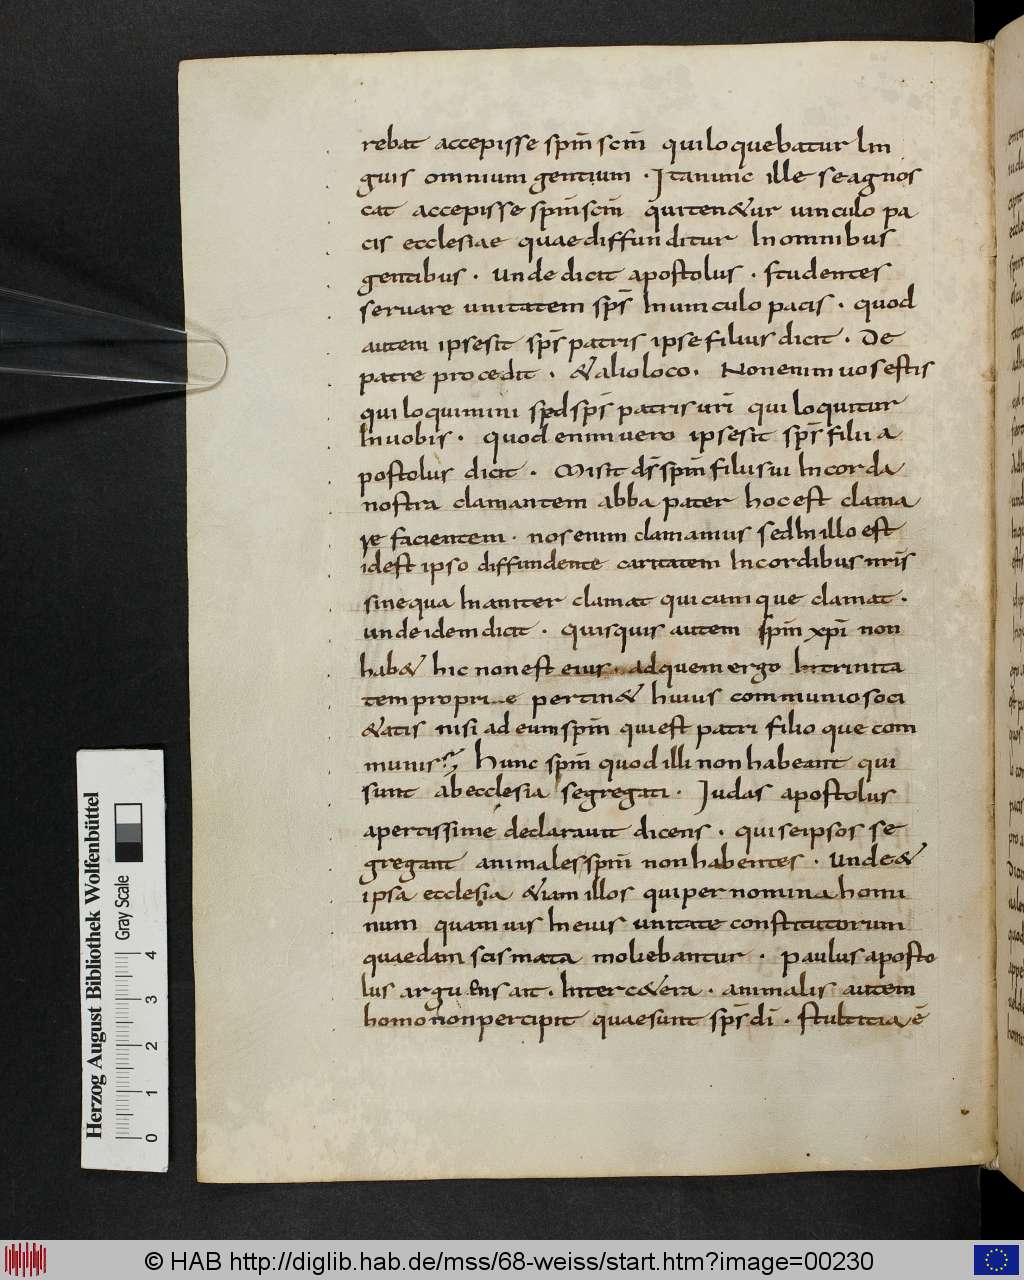 rebat accepisse spm̄ scm̄ qui loquebatur lin
guis omnium gentium · Ita nunc ille se agnos
cat accepisse spm̄ scm̄ qui ten&ur uinculo pa
cis ecclesiae quae diffunditur In omnibus
gentibus · unde dicit apostolus · studentes
seruare unitatem sps̄ In uinculo pacis · quod
autem ipse sit sps̄ patris ipse filius dicit · De
patre procedit · & alio loco · Non enim uos estis
qui loquimini sed sps̄ patris uri̅ qui loquitur
In uobis · quod enim uero ipse sit sps̄ filii a
postolus dicit · Misit ds̄ spm̄ filii sui In corda
nostra clamantem abba pater hoc est clama
re facientem · nos enim clamamus sed In illo est
id est ipso diffundente caritatem In cordibus nris̄
sine qua Inaniter clamat quicumque clamat ·
unde idem dicit · quisquis autem spm̄ xpi̅ non
hab& hic non est eius · ad quem ergo In trinita
tem propri e pertin& huius communio soci
&atis nisi ad eum spm̄ qui est patri filioque com
munis Hunc spm̄ quod illi non habeant qui
sunt ab ecclesia segregati · Judas apostolus
apertissime declarauit dicens · qui se ipsos se
gregant animales spm̄ non habentes · unde &
ipsa ecclesia &iam illos qui per nomina homi
num quamuis In eius unitate constitutorum
quaedam scismata moliebantur · paulus aposto
lus arguens ait · Inter c&era · animalis autem
homo non percipit quae sunt sps̄ di̅ · stultitia ē
Herzog August Bibliothek Wolfenbüttel
Gray Scale
0 1 2 3 4
© HAB http://diglib.hab.de/mss/68-weiss/start.htm?image=00230